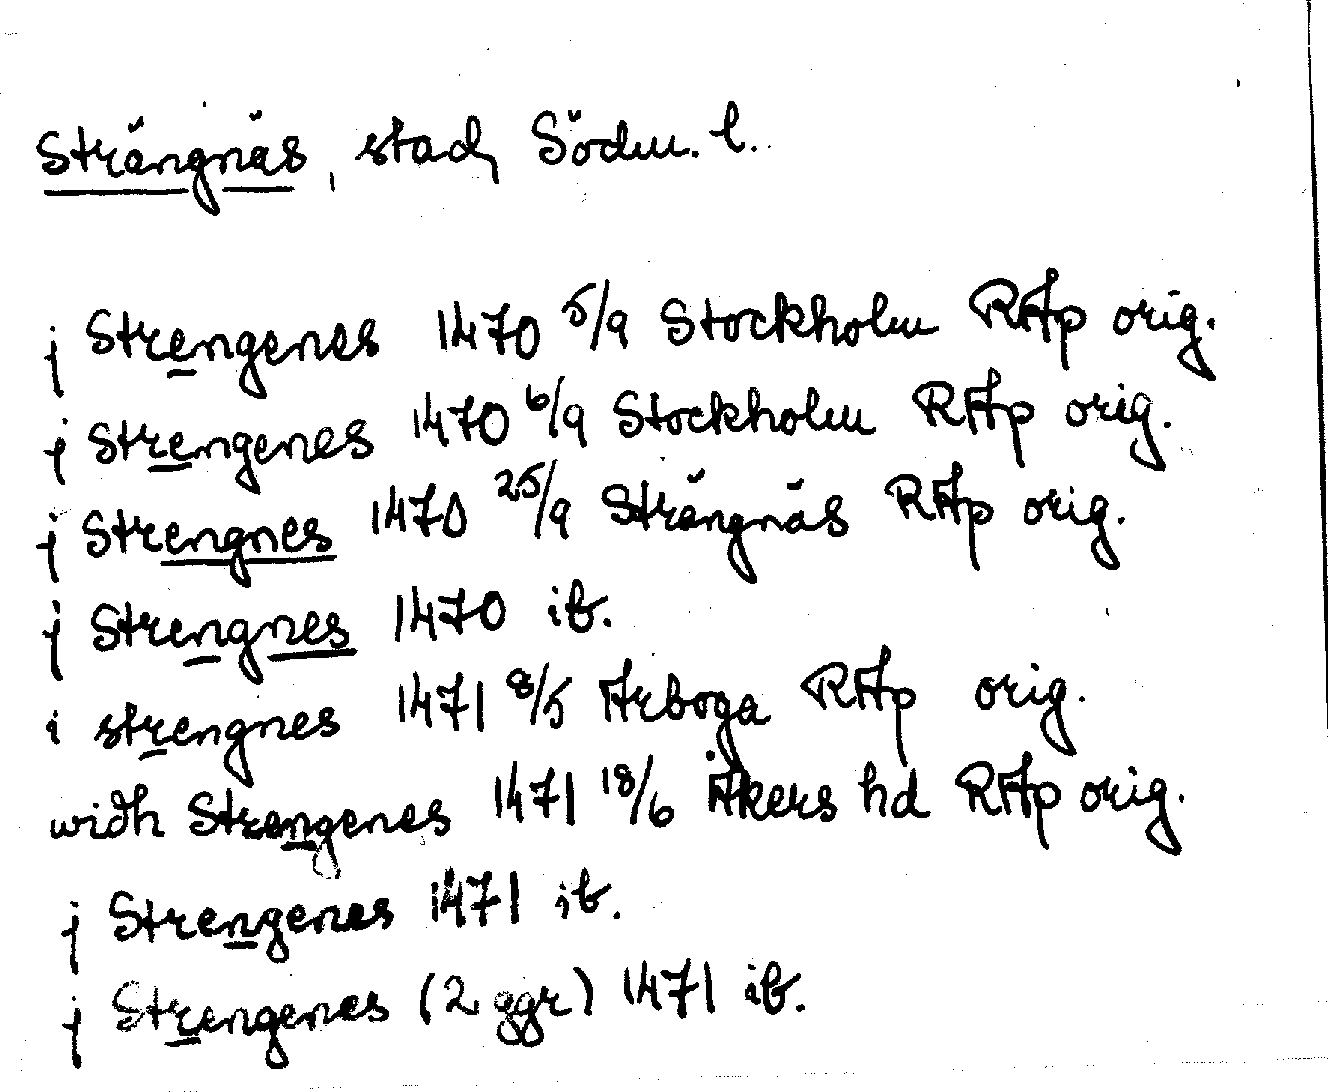 Strängnäs, stad, Södm. l.
j Strengenes 1470 5/9 Stockholm RAp orig.
j Strengenes 1470 6/9 Stockholm RAp orig.
j Strengnes 1470 25/9 Strängnäs RAp orig.
j Strengnes 1470 ib.
i strengnes 1471 8/5 Arboga RAp orig.
widh Strengenes 1471 18/6 Åkers hd RAp orig.
j Strengenes 1471 ib.
j Strengenes (2 ggr) 1471 ib.